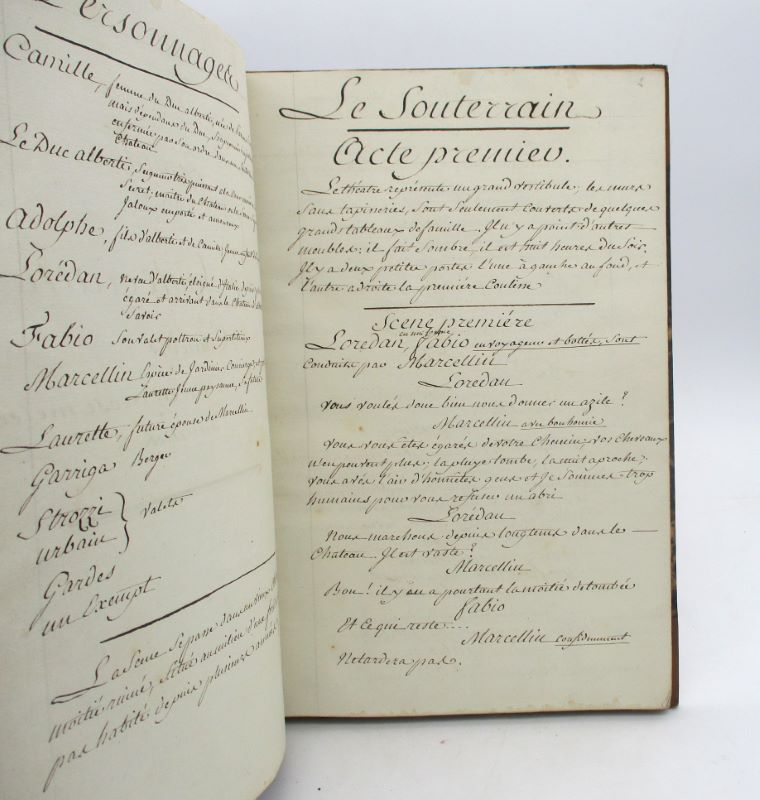 Personnages
Camille, femme du Duc alberti, née de
mais dépendans du Duc,
enfermée par Son ordre dans un
Chateau
Le Duc alberti, Seigneur très puissant
Secret. maitre du Chateau
Jaloux emporté et
Adolphe, fils d'alberti et de Camille
Lorédan, neveu d'alberti, éloigné d'
égaré et arrivant dans le Chateau
Savoir
Fabio Son valet poltron et Superstitieux
Marcellin
Laurette Jeune paysanne, Sa future
Laurette, future épouse de Marcellin
Garriga Berger
Strozzi
urbain } valets
Gardes
un Exempt
La Scene Se passe dans un vieux
moitié ruiné, Situé au milieu d'une
pas habité depuis plusieurs années
Le Souterrain
Acte premier.
Le théatre représente un grand vestibule; les murs
Sans tapisseries, Sont Seulement couverts de quelques
grands tableaux de famille. Il n'y a point d'autres
meubles: il fait Sombre, il est huit heures du Soir.
Il y a deux petites portes l'une à gauche au fond, et
l'autre a droite la premiére Coulisse
Scene premiére
Lorédan, Fabio en voyageurs et bottés, Sont
Conduits par Marcellin
Lorédan
Vous voulés donc bien nous donner un azile?
Marcellin avec bonhomie
Vous vous étes égarés de votre Chemin; vos Chevaux
n'en peuvent plus; la pluye tombe, la nuit aproche;
vous avés l'air d'honnêtes gens et Je Sommes trop
humains pour vous refuser un abri
Lorédan
Nous marchons depuis longtems dans le
Chateau. Il est vaste?
Marcellin
Bon! il y en a pourtant la moitié de tombée
fabio
Et Ce qui reste....
Marcellin confidemment
Ne tardera pas.